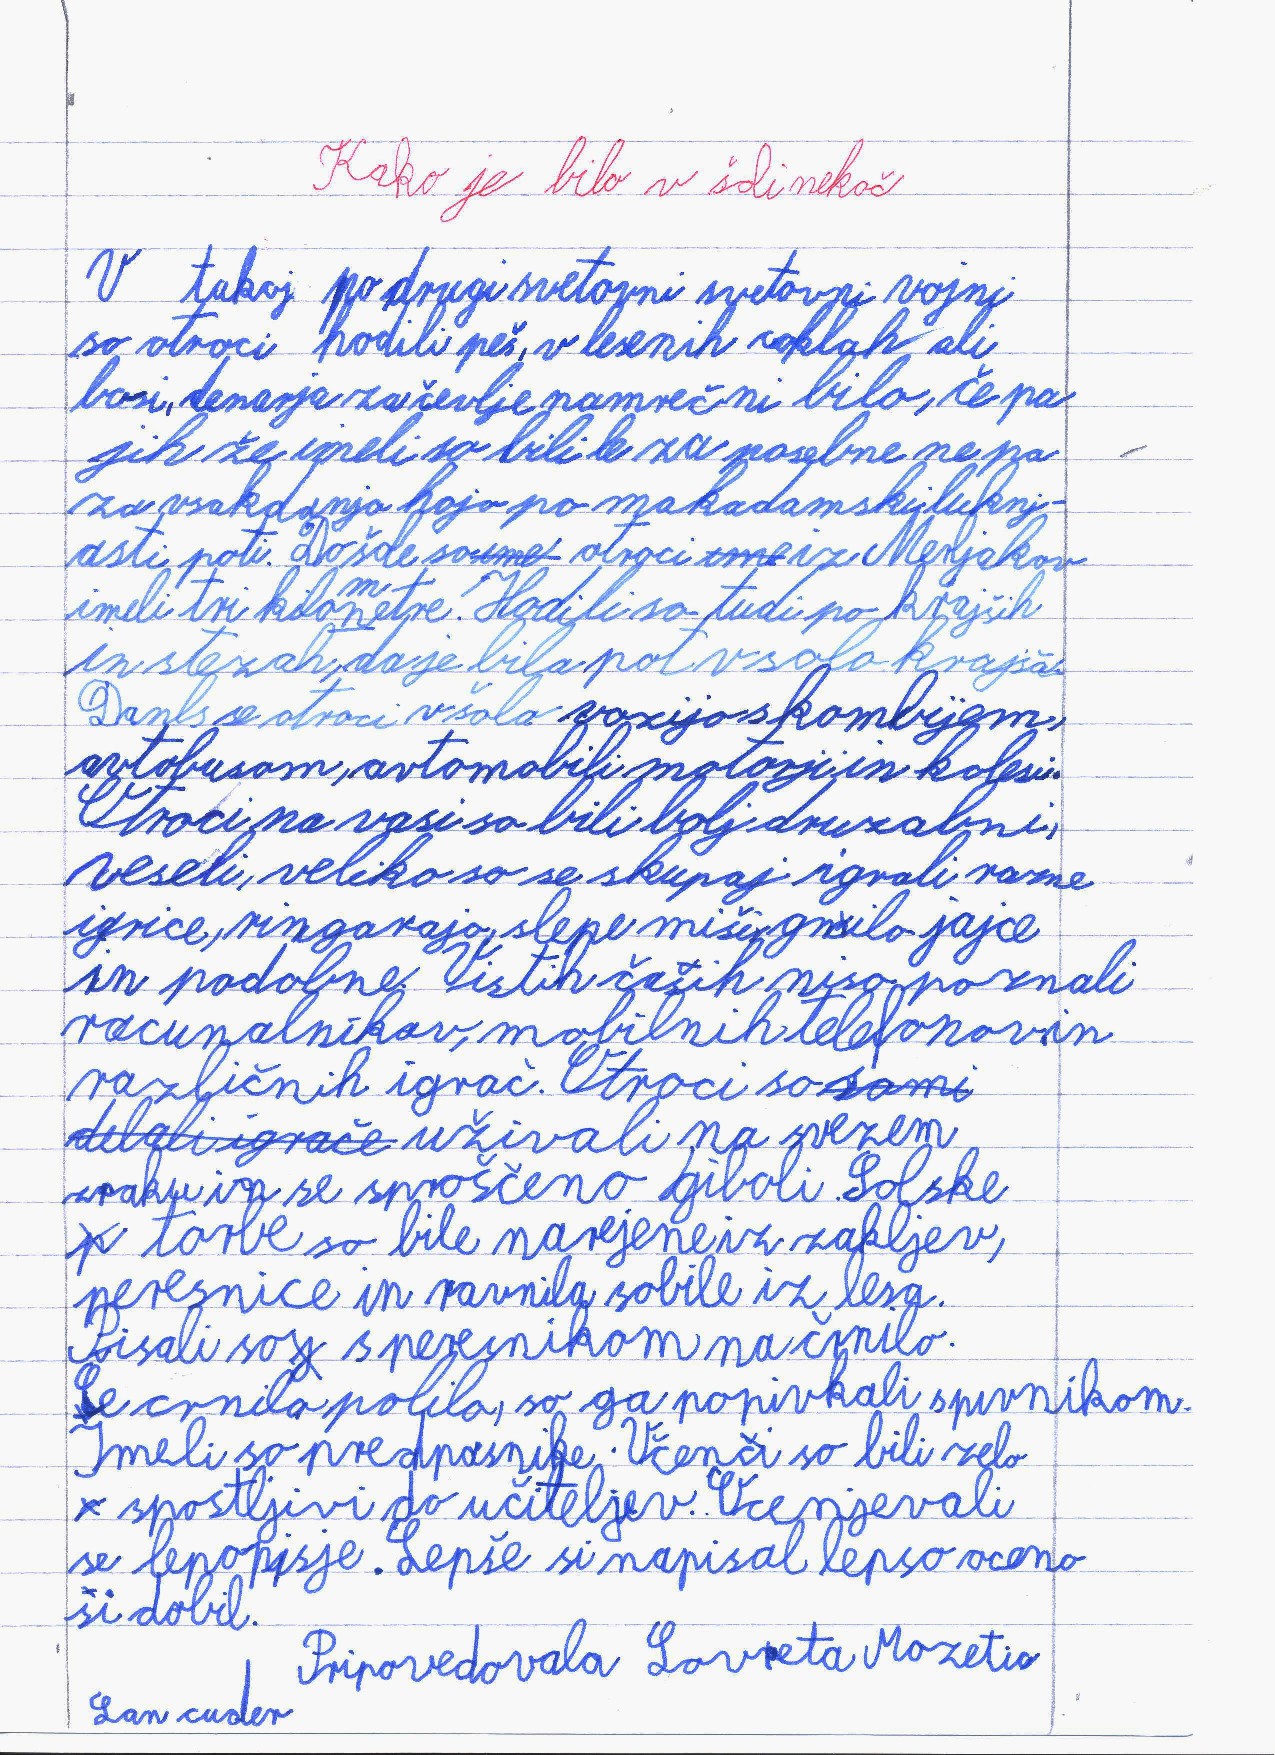 Kako je bilo v šoli nekoč
V takoj po drugi svetovni svetovni vojni
so otroci hodili peš, v lesenih coklah ali
bosi, denarja za čevlje namreč ni bilo, če pa
jih že imeli so bili le za posebne ne pa
za vsakdanjo hojo po makadamski luknj-
asti poti. Do šole so otroci iz Merljakov
imeli tri kilometre. Hodili so tudi po krajših
in stezah, da je bila pot v solo krajša.
Danes se otroci v šolo vozijo s kombijem,
avtobusom, avtomobili motorji in kolesi.
Otroci na vasi so bili bolj druzabni,
veseli, veliko so se skupaj igrali razne
igrice, ringaraja, slepe miši, gnilo jajce
in podobne. V istih časih niso poznali
racunalnikov, mobilnih telefonov in
različnih igrač. Otroci so sami
delali igrače uživali na svezem
zraku in se sproščeno gibali. Šolske
torbe so bile narejene iz zakljev,
peresnice in ravnila so bile iz lesa.
Pisali so s peresnikom na črnilo.
Če crnilo polilo, so ga popivkali s pivnikom.
Imeli so predpasnike. Učenči so bili zelo
spostljivi do učiteljev. Ucenjevali
se lepopisje. Lepše si napisal lepso oceno
ši dobil.
Pripovedovala Lovreta Mozetic
Lan cuder